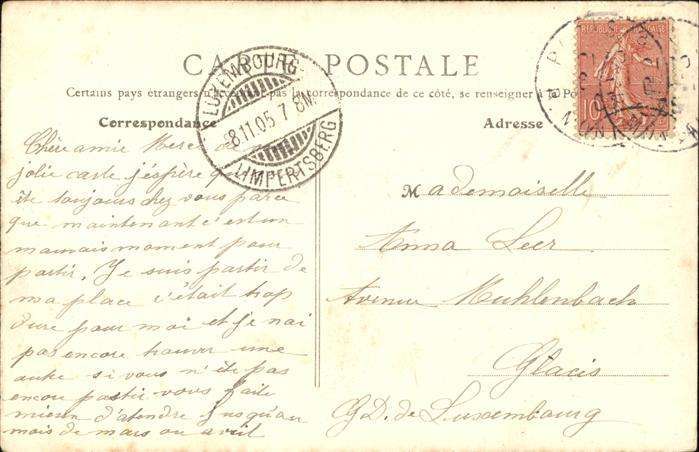 CARTE POSTALE
Certains pays étrangers n'acceptant pas la correspondance de ce côté, se renseigner à la Poste
Correspondance
Adresse
LUXEMBOURG
8.11.05 7 8M
LIMPERTSBERG
10
Chère amie Merci de
jolie carte j'éspère q
ête toujours chez vous parce
que maintenant c'est un
mauvais moment pour
partir. Je suis partir de
ma place c'était trop
dure pour moi et je n'ai
pas encore trouver une
autre si vous n'ête pas
encore partir vous faite
mieux d'atendre jusqu'au
mois de mars ou avril
Mademoiselle
Anna Leer
Avenue Muhlenbach
Glacis
G.D. de Luxembourg